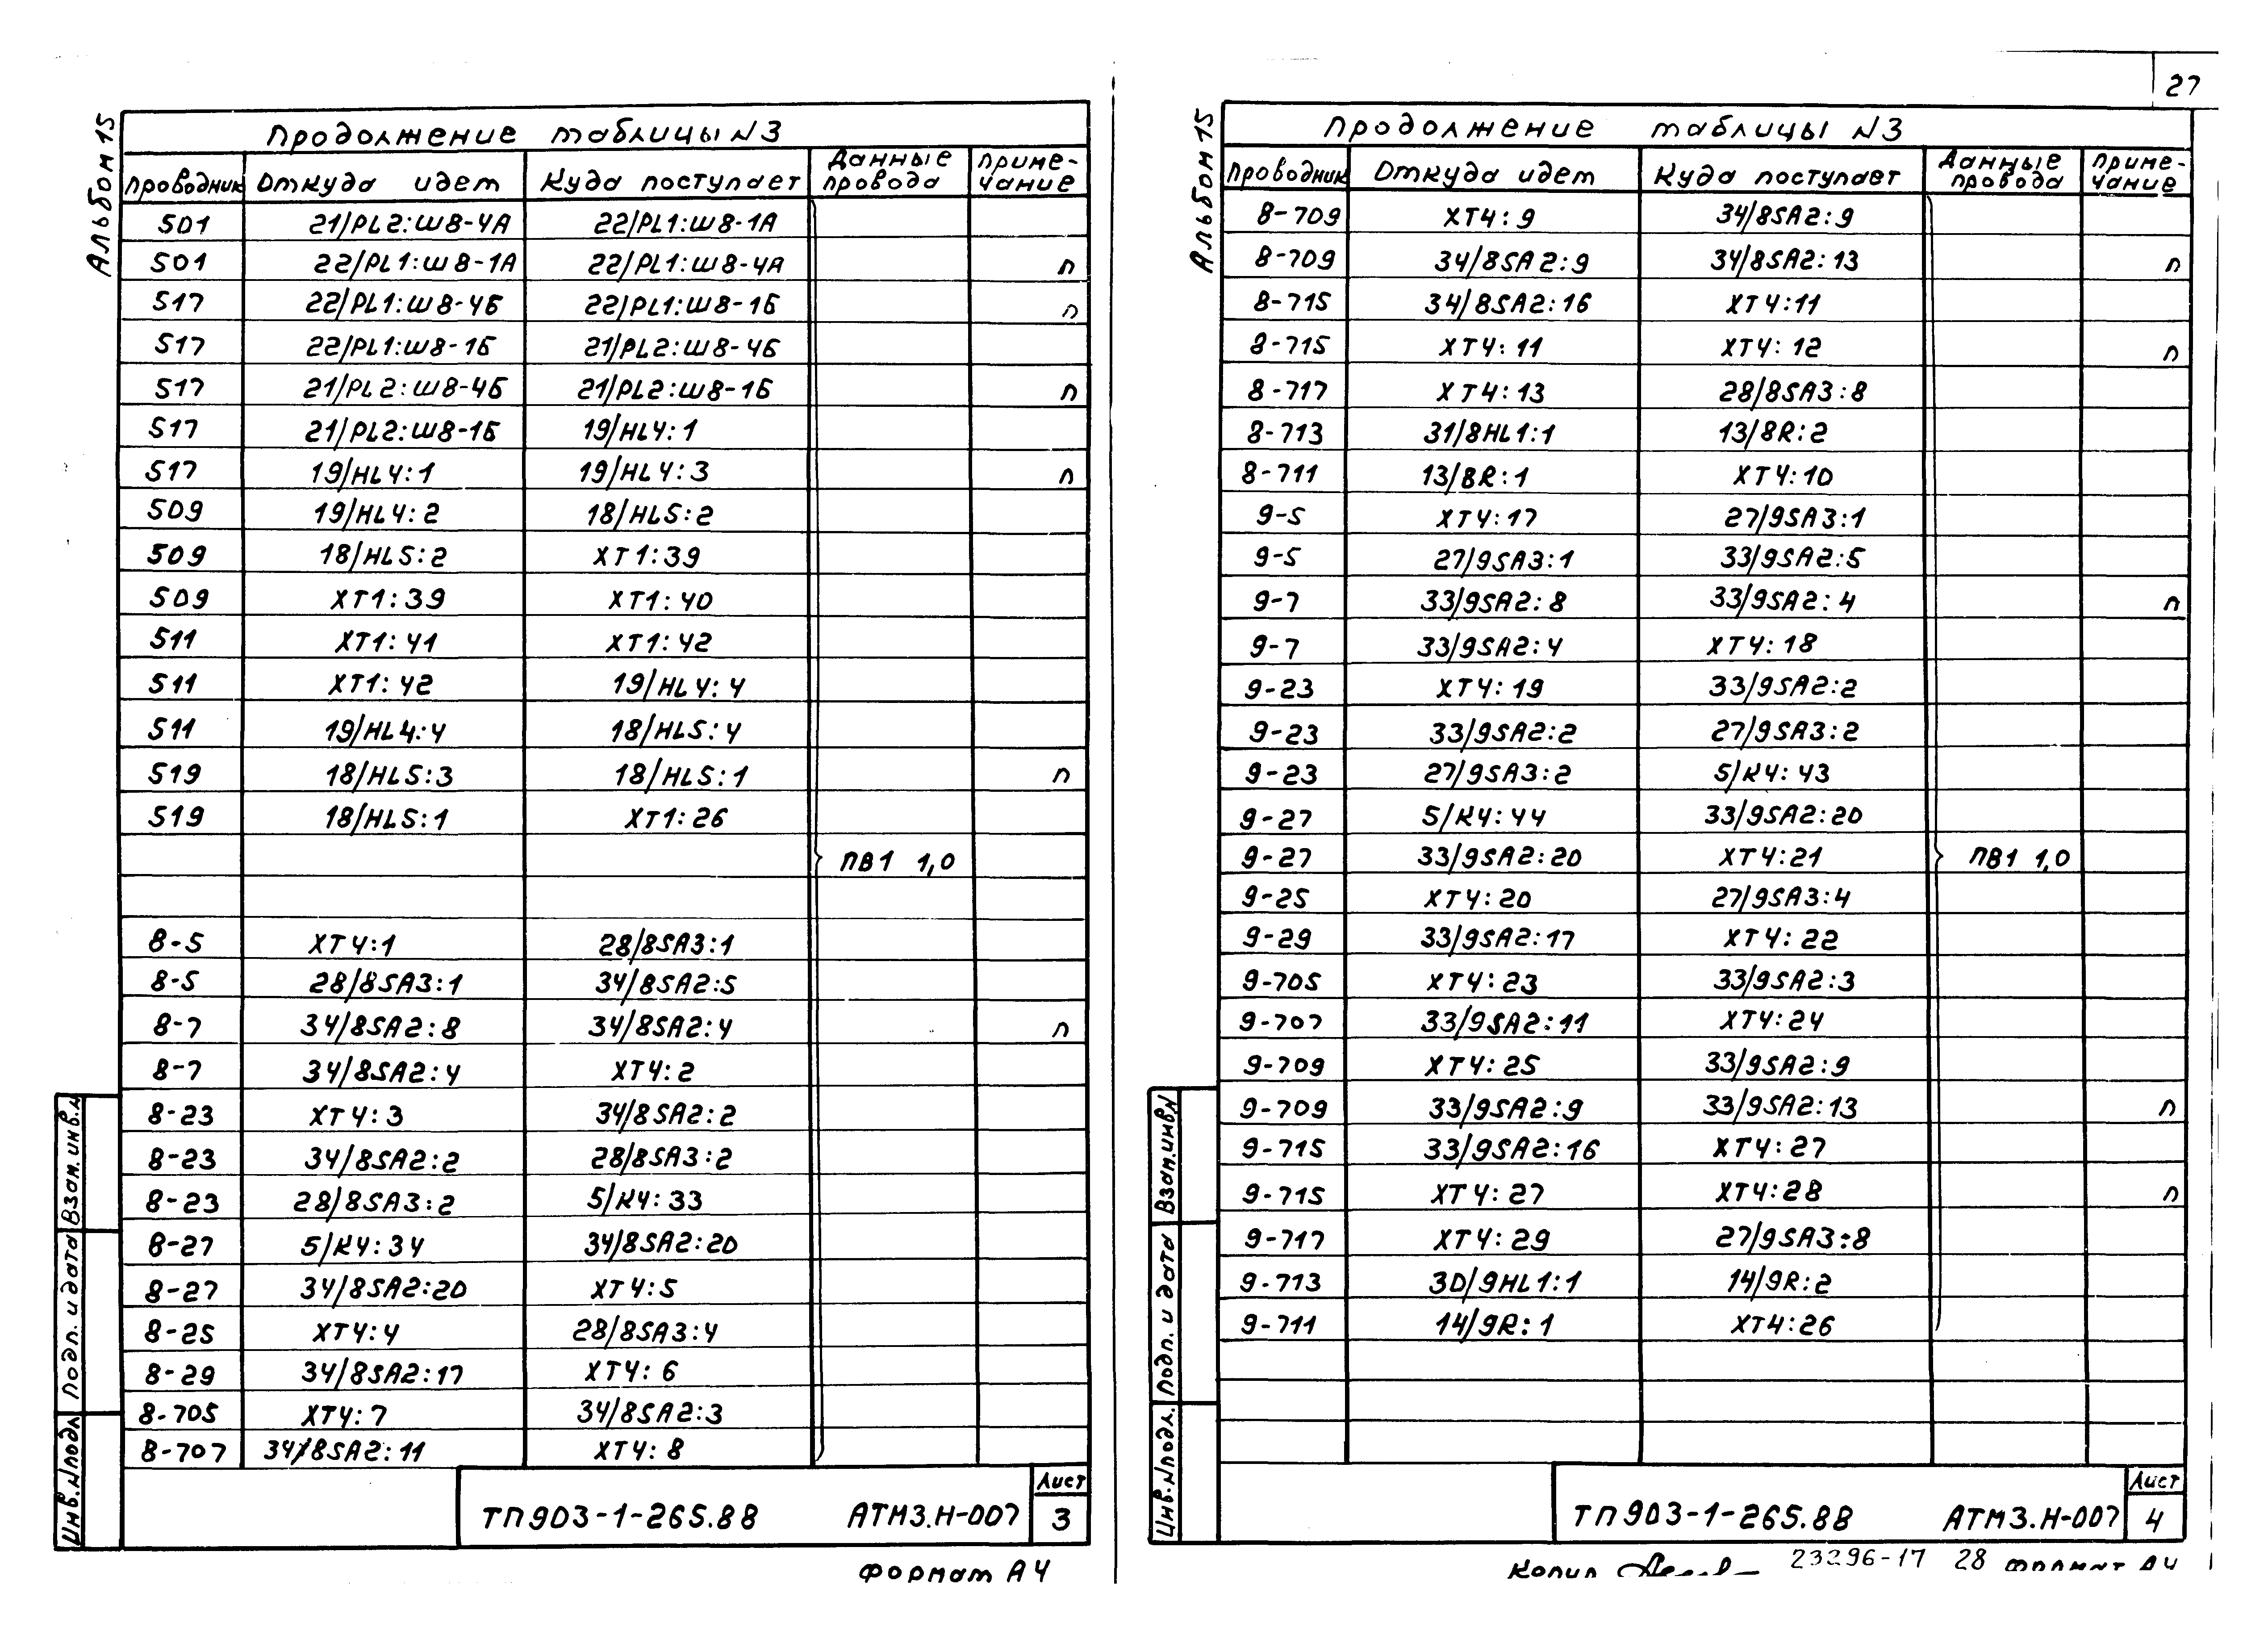 27
Альбом 15
Продолжение таблицы N3
Проводник Откуда идет Куда поступает Данные провода Приме-чание
501 21/PL2:Ш8-4А 22/PL1:Ш8-1А
501 22/PL1:Ш8-1А 22/PL1:Ш8-4А п
517 22/PL1:Ш8-4Б 22/PL1:Ш8-1Б п
517 22/PL1:Ш8-1Б 21/PL2:Ш8-4Б
517 21/PL2:Ш8-4Б 21/PL2:Ш8-1Б п
517 21/PL2:Ш8-1Б 19/HL4:1
517 19/HL4:1 19/HL4:3 п
509 19/HL4:2 18/HL5:2
509 18/HL5:2 XT1:39
509 XT1:39 XT1:40
511 XT1:41 XT1:42
511 XT1:42 19/HL4:4
511 19/HL4:4 18/HL5:4
519 18/HL5:3 18/HL5:1 п
519 18/HL5:1 XT1:26
ПВ1 1,0
8-5 XT4:1 28/8SA3:1
8-5 28/8SA3:1 34/8SA2:5
8-7 34/8SA2:8 34/8SA2:4 п
8-7 34/8SA2:4 XT4:2
8-23 XT4:3 34/8SA2:2
8-23 34/8SA2:2 28/8SA3:2
8-23 28/8SA3:2 5/K4:33
8-27 5/K4:34 34/8SA2:20
8-27 34/8SA2:20 XT4:5
8-25 XT4:4 28/8SA3:4
8-29 34/8SA2:17 XT4:6
8-705 XT4:7 34/8SA2:3
8-707 34/8SA2:11 XT4:8
Взам.инв.N
Подп. и дата
Инв.Nподл.
ТП903-1-265.88 АТМ3.Н-007 Лист 3
Формат А4
Альбом 15
Продолжение таблицы N3
Проводник Откуда идет Куда поступает Данные провода Приме-чание
8-709 XT4:9 34/8SA2:9
8-709 34/8SA2:9 34/8SA2:13 п
8-715 34/8SA2:16 XT4:11
8-715 XT4:11 XT4:12 п
8-717 XT4:13 28/8SA3:8
8-713 31/8HL1:1 13/8R:2
8-711 13/8R:1 XT4:10
9-5 XT4:17 27/9SA3:1
9-5 27/9SA3:1 33/9SA2:5
9-7 33/9SA2:8 33/9SA2:4 п
9-7 33/9SA2:4 XT4:18
9-23 XT4:19 33/9SA2:2
9-23 33/9SA2:2 27/9SA3:2
9-23 27/9SA3:2 5/K4:43
9-27 5/K4:44 33/9SA2:20
9-27 33/9SA2:20 XT4:21 ПВ1 1,0
9-25 XT4:20 27/9SA3:4
9-29 33/9SA2:17 XT4:22
9-705 XT4:23 33/9SA2:3
9-707 33/9SA2:11 XT4:24
9-709 XT4:25 33/9SA2:9
9-709 33/9SA2:9 33/9SA2:13 п
9-715 33/9SA2:16 XT4:27
9-715 XT4:27 XT4:28 п
9-717 XT4:29 27/9SA3:8
9-713 30/9HL1:1 14/9R:2
9-711 14/9R:1 XT4:26
Взам.инв.N
Подп. и дата
Инв.Nподл.
ТП903-1-265.88 АТМ3.Н-007 Лист 4
Копир 23296-17 28 Формат А4